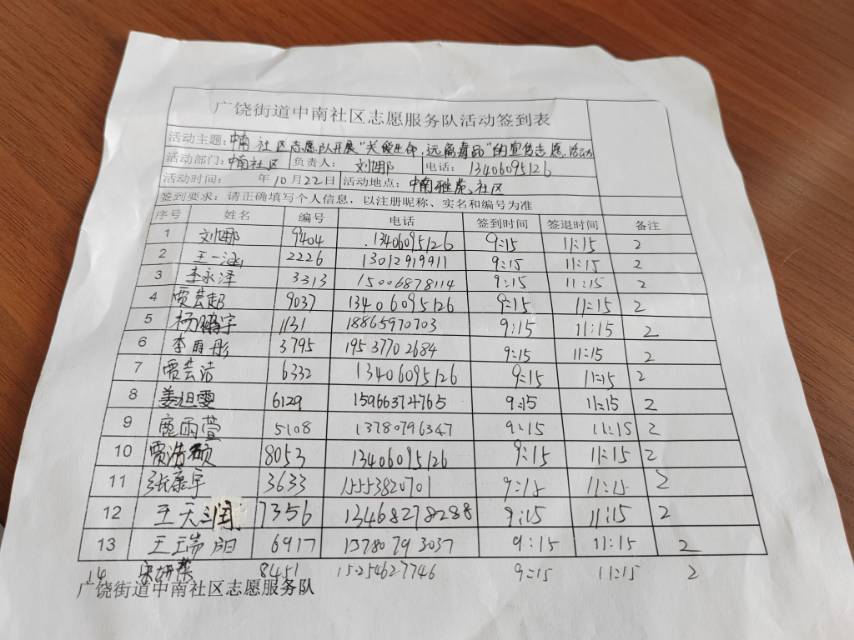 广饶街道中南社区志愿服务队活动签到表
活动主题：中南社区志愿队开展"关爱生命，远离毒品"的宣传志愿活动
活动部门：中南社区 负责人： 刘娜 电话：13406095126
活动时间： 年10月22日 活动地点：中南雅苑社区
签到要求：请正确填写个人信息，以注册昵称、实名和编号为准
序号 姓名 编号 电话 签到时间 签退时间 备注
1 刘娜 9404 13406095126 9:15 11:15 2
2 王一涵 2226 13012919911 9:15 11:15 2
3 李永泽 3313 15006878114 9:15 11:15 2
4 贾芸起 9037 13406095126 9:15 11:15 2
5 杨鹏宇 1131 18865970703 9:15 11:15 2
6 李雨彤 3795 19537702684 9:15 11:15 2
7 贾芸洁 6332 13406095126 9:15 11:15 2
8 姜坦雯 6129 15966314765 9:15 11:15 2
9 雨萱 5108 13780796347 9:15 11:15 2
10 贾浩硕 8053 13406095126 9:15 11:15 2
11 张康宇 3633 15553820701 9:15 11:15 2
12 王天润 7356 13468278288 9:15 11:15 2
13 王瑞阳 6917 13780793037 9:15 11:15 2
14 宋妍蓉 8451 15254627746 9:15 11:15 2
广饶街道中南社区志愿服务队